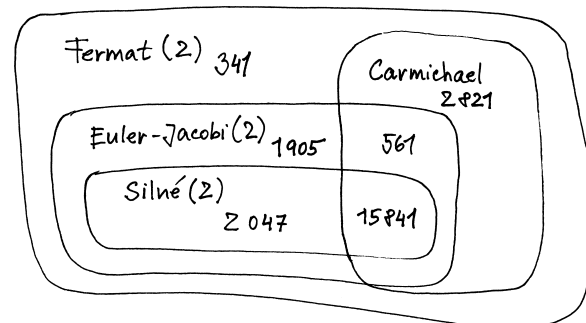 Fermat (2) 341
Carmichael
2821
Euler-Jacobi (2) 1905
561
Silné (2)
2047
15841